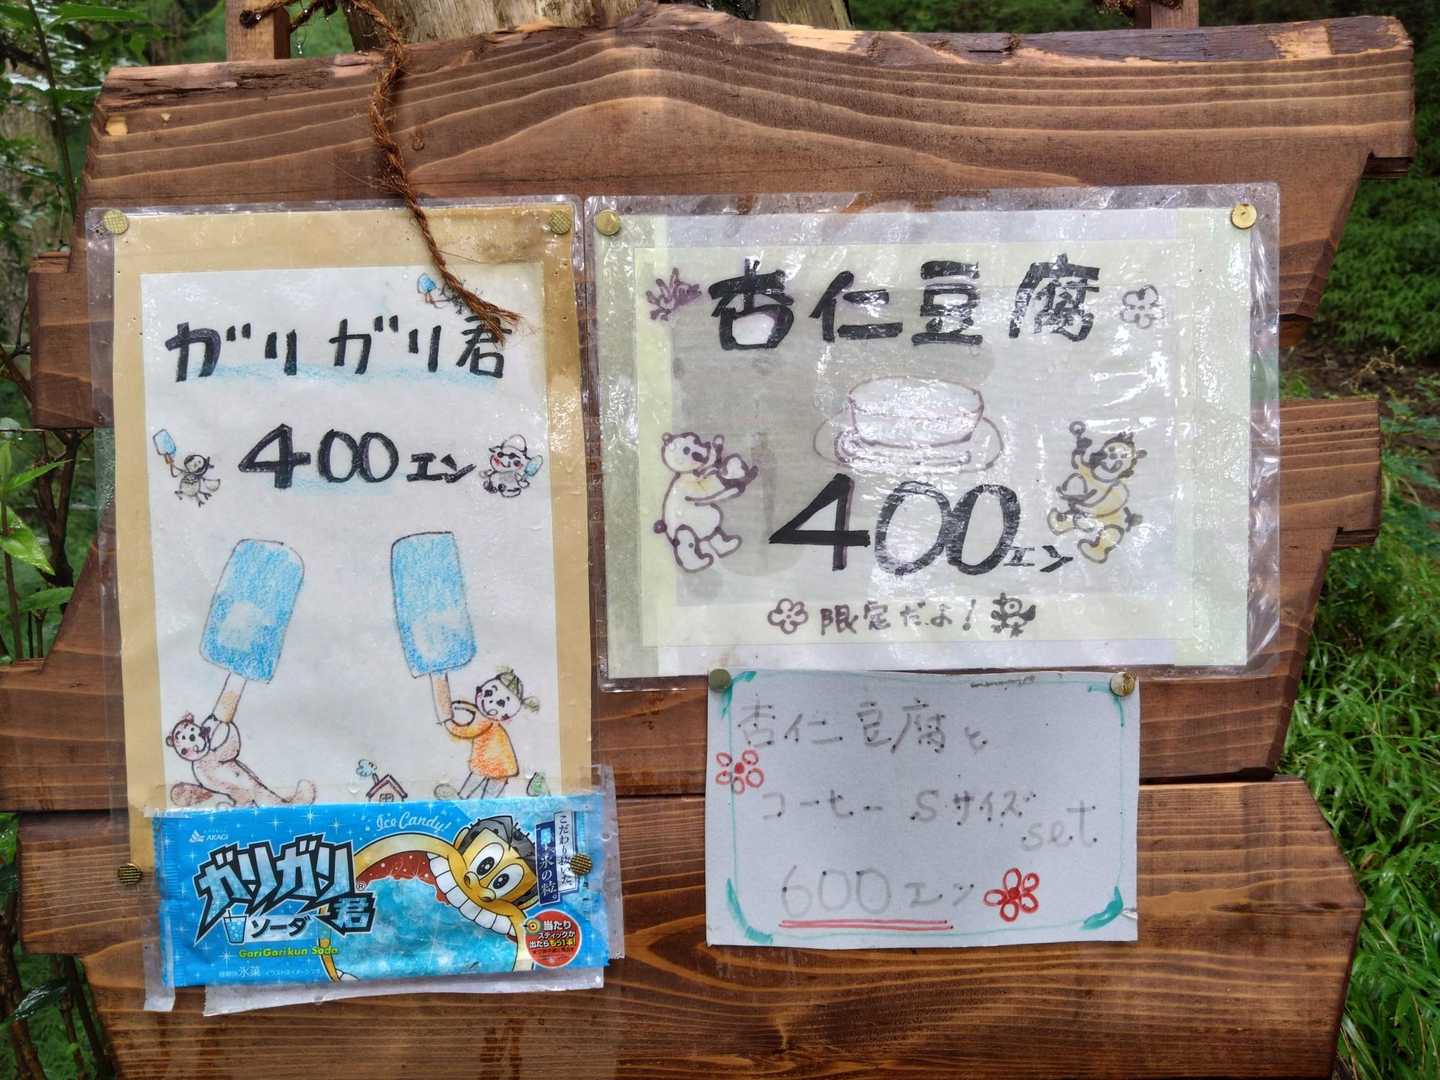 ガリガリ君
400エン
AKAGI
Ice Candy!
ガリガリ君
ソーダ
GariGarikun Soda
氷菓
当たり
スティックが
出たらもう1本!
杏仁豆腐
400エン
限定だよ!
杏仁豆腐と
コーヒー Sサイズ
set
600エン